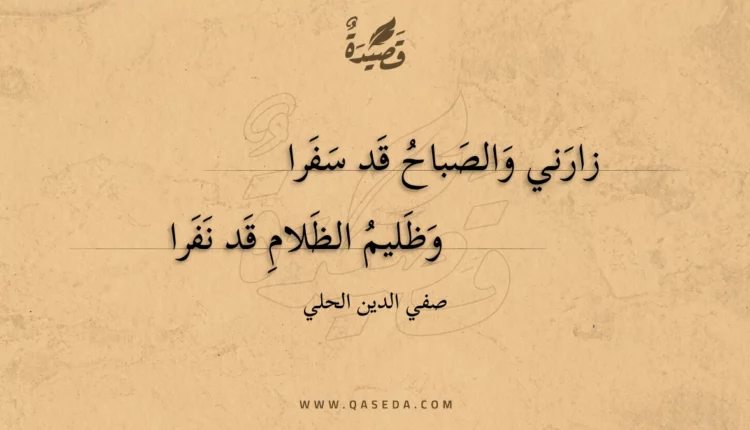 قَصِيدَةٌ
زارَني وَالصَباحُ قَد سَفَرا
وَظَليمُ الظَلامِ قَد نَفَرا
صفي الدين الحلي
WWW.QASEDA.COM